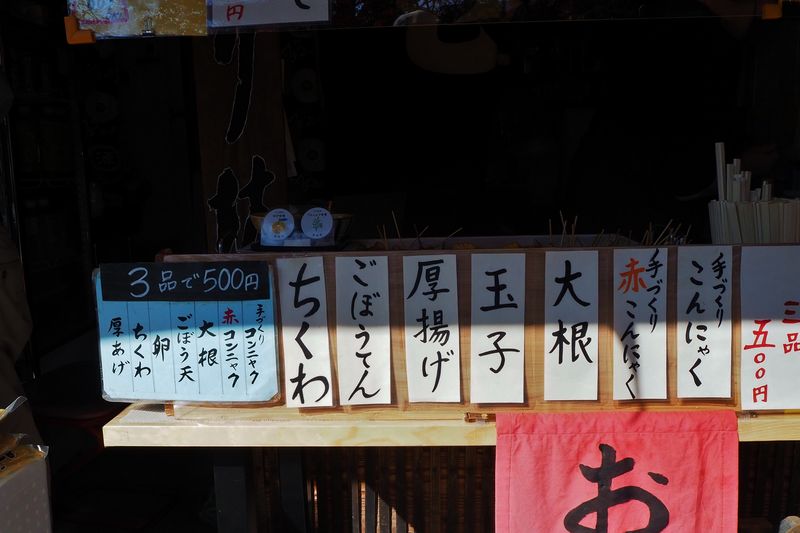 3品で500円
手づくり
コンニャク
赤コンニャク
大根
ごぼう天
卵
ちくわ
厚あげ
三品
五〇〇円
手づくり
こんにゃく
手づくり
赤こんにゃく
大根
玉子
厚揚げ
ごぼうてん
ちくわ
お
円